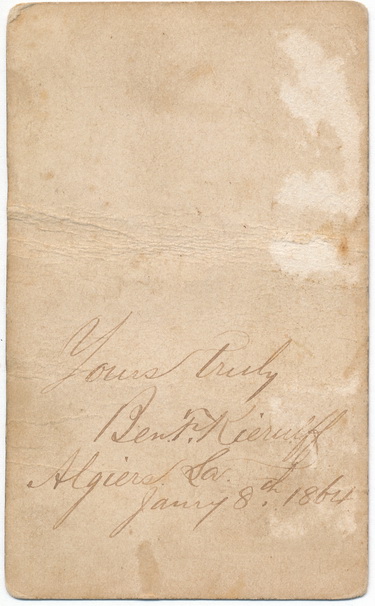 Yours truly
Ben F. Kieruff
Algiers. La.
Janry 8th. 1864